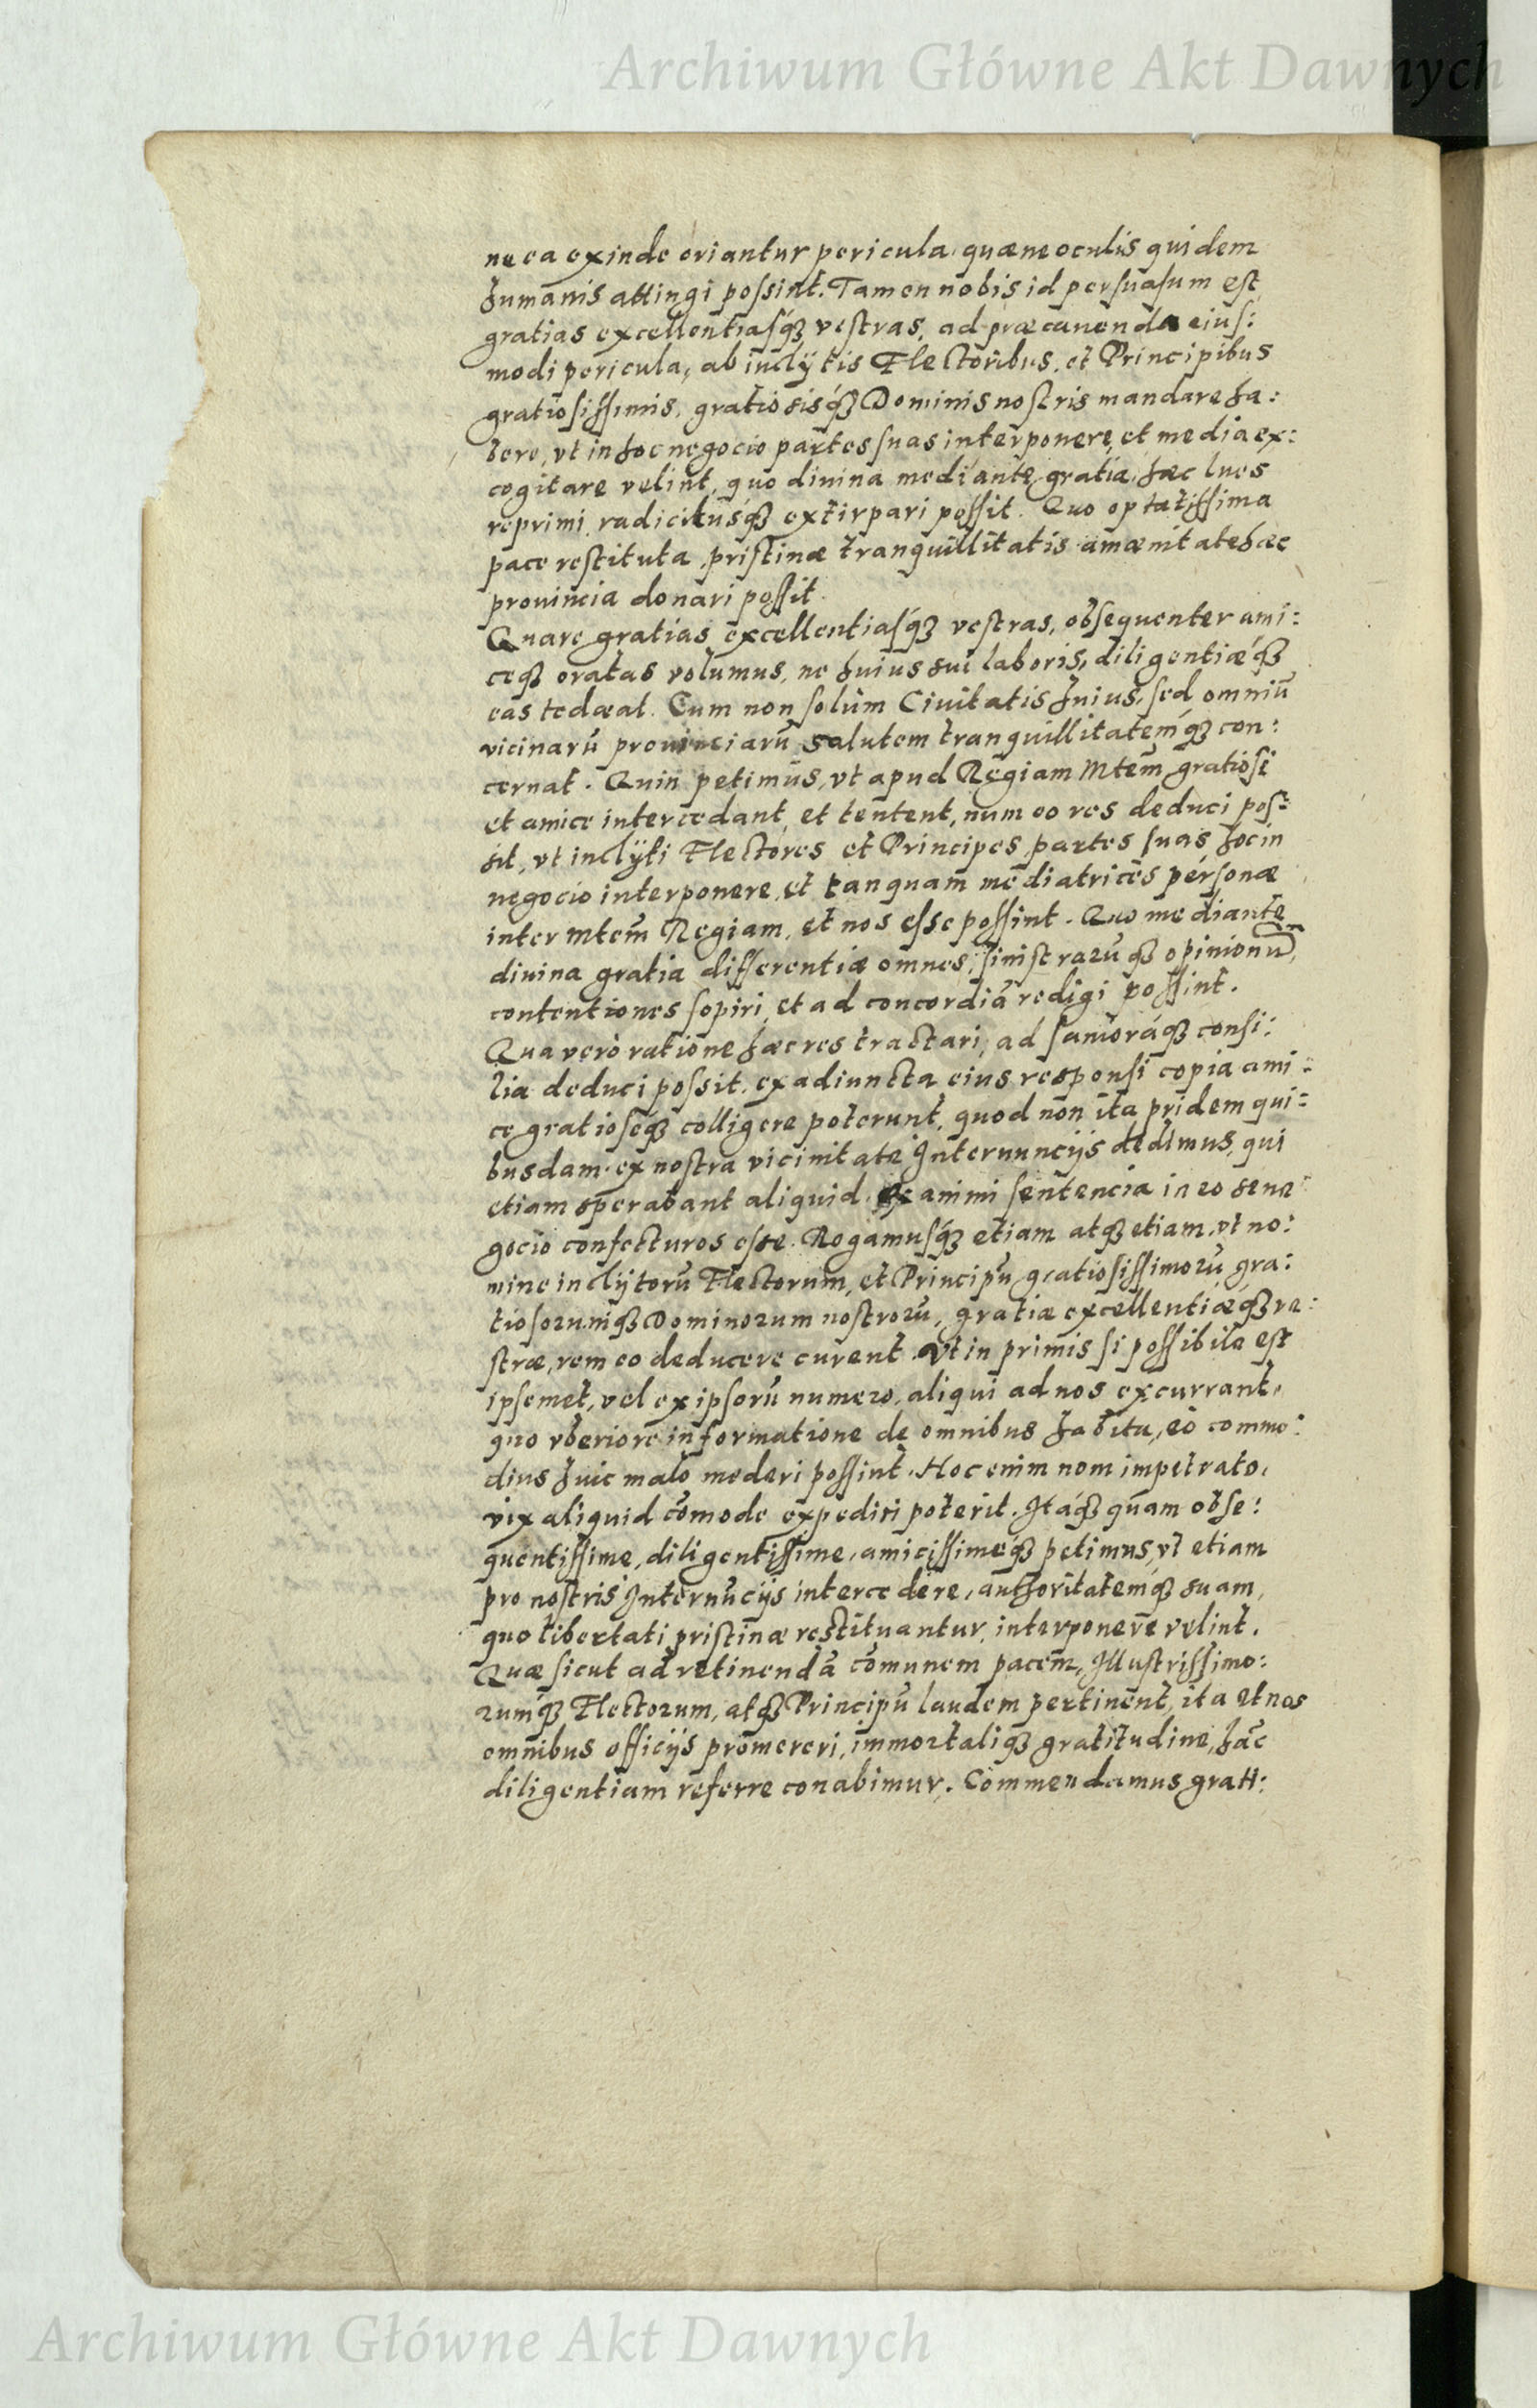 Archiwum Główne Akt Dawnych
ne ea exinde oriantur pericula, quæ ne oculis quidem
humanis attingi possint. Tamen nobis id persuasum est
gratias excellentiasq́ꝫ vestras, ad præcauenda eius:
modi pericula, ab inclÿtis Electoribus, et Principibus
gratiosissimis, gratiosisq́ꝫ Dominis nostris mandare ha:
bere, vt in hoc negocio partes suas interponere, et media ex:
cogitare velint, quo diuina mediante gratia, hæc lues
reprimi radicitúsq́ꝫ extirpari possit. Quo optatissima
pace restituta, pristinæ tranquillitatis amœnitate hæc
prouincia donari possit.
Quare gratias excellentiasq́ꝫ vestras, obsequenter ami:
ceqꝫ oratas volumus, ne huius sui laboris, diligentiæq́ꝫ
eas tedæat. Cum non solùm Ciuitatis huius, sed omniū
vicinarū prouinciarū salutem tranquillitatemq́ꝫ con:
cernat. Quin petimus, vt apud Regiam Mtem̄ gratiosè
et amice intercedant, et tentent, num eo res deduci pos:
sit, vt inclÿti Electores et Principes partes suas hoc in
negocio interponere, et tanquam mediatrices personæ
inter Mtem̄ Regiam, et nos esse possint. Quo mediante
diuina gratia differentiæ omnes, sinistrarū qꝫ opinionū,
contentiones sopiri, et ad concordiā redigi possint.
Qua verò ratione hæc res tractari, ad sanioráqꝫ consi:
lia deduci possit, ex adiuncta eius responsi copia ami:
ce gratioseqꝫ colligere poterunt, quod non ita pridem qui:
busdam ex nostra vicinitate Internuncijs dedimus, qui
etiam sperabant aliquid ex animi sentencia in eo sene
gocio confecturos esse. Rogamusq́ꝫ etiam atqꝫ etiam, vt no:
mine inclÿtorū Electorum, et Principū gratiosissimorū gra:
tiosorumqꝫ Dominorum nostrorū, gratiæ excellentiæq́ꝫ ve:
stræ, rem eo deducere curent. Vt in primis si possibile est
ipsemet, vel ex ipsorū numero, aliqui ad nos excurrant,
quo vberiore informatione de omnibus habita, eò commo:
dius huic malo mederi possint. Hoc enim nom impetrato,
vix aliquid cōmode expediri poterit. Itáqꝫ quam obse:
quentissime, diligentissime, amicissimeqꝫ petimus, vt etiam
pro nostris Internūcijs intercedere, authoritatemqꝫ suam,
quo libertati pristinæ restituantur, interponere velint.
Quæ sicut ad retinendā cōmunem pacem, Illustrissimo:
rumqꝫ Electorum, atqꝫ Principū laudem pertinent, ita et nos
omnibus officijs promereri, immortaliqꝫ gratitudine, hāc
diligentiam referre conabimur. Commendamus grati:
Archiwum Główne Akt Dawnych